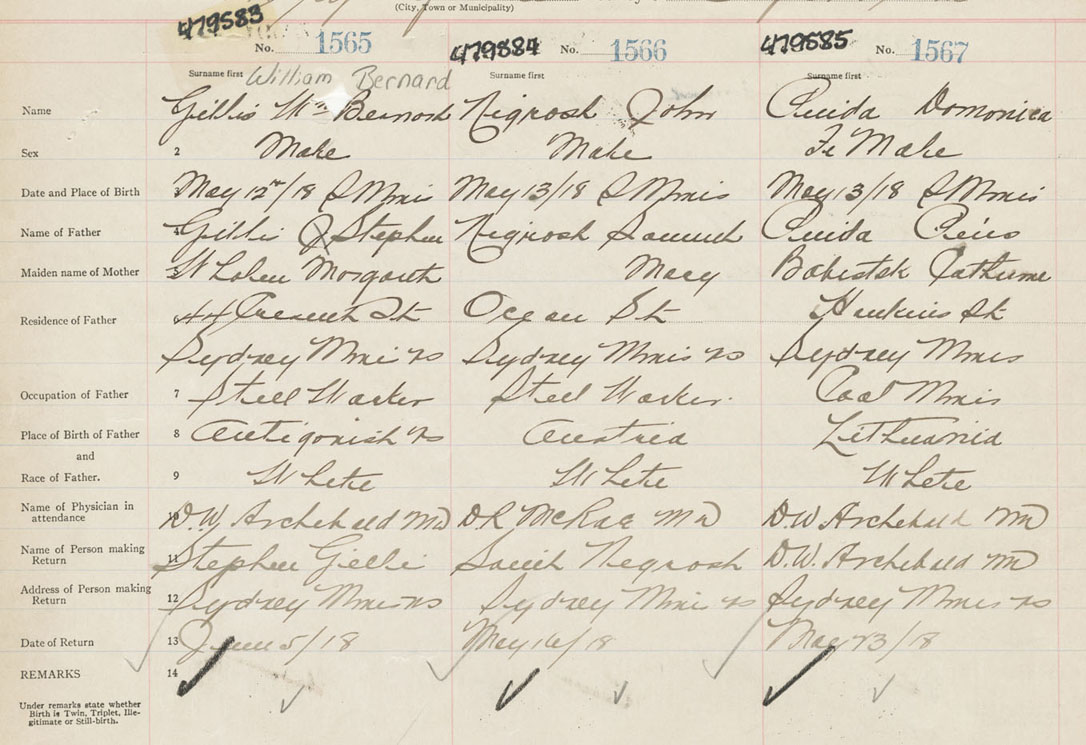 (City, Town or Municipality)
479583 479884 479585
No. 1565 No. 1566 No. 1567
Surname first William Bernard Surname first Surname first
Name Gillis Wm Bernard Nigrosh John Domonica
Sex 2 Male Male Fe Male
Date and Place of Birth 3 May 12th/18 S Mines May 13/18 S Mines May 13/18 S Mines
Name of Father 4 Gillis J Stephen Nigrosh
Maiden name of Mother 5 Whalen Margaret Mary Catherine
Residence of Father 44 St Ocean St Hawkins St
Sydney Mines NS Sydney Mines NS Sydney Mines
Occupation of Father 7 Steel Worker Steel Worker. Coal Mines
Place of Birth of Father 8 Antigonish NS Austria Lithuania
and
Race of Father. 9 White White White
Name of Physician in
attendance 10 D.W. Archibald MD D R McRae MD D.W Archibald MD
Name of Person making
Return 11 Stephen Gillis Negrosh D.W. Archibald MD
Address of Person making
Return 12 Sydney Mines NS Sydney Mines NS Sydney Mines NS
Date of Return 13 June 5/18 May 16/18 May 23/18
REMARKS 14
Under remarks state whether
Birth is Twin, Triplet, Ille-
gitimate or Still-birth.